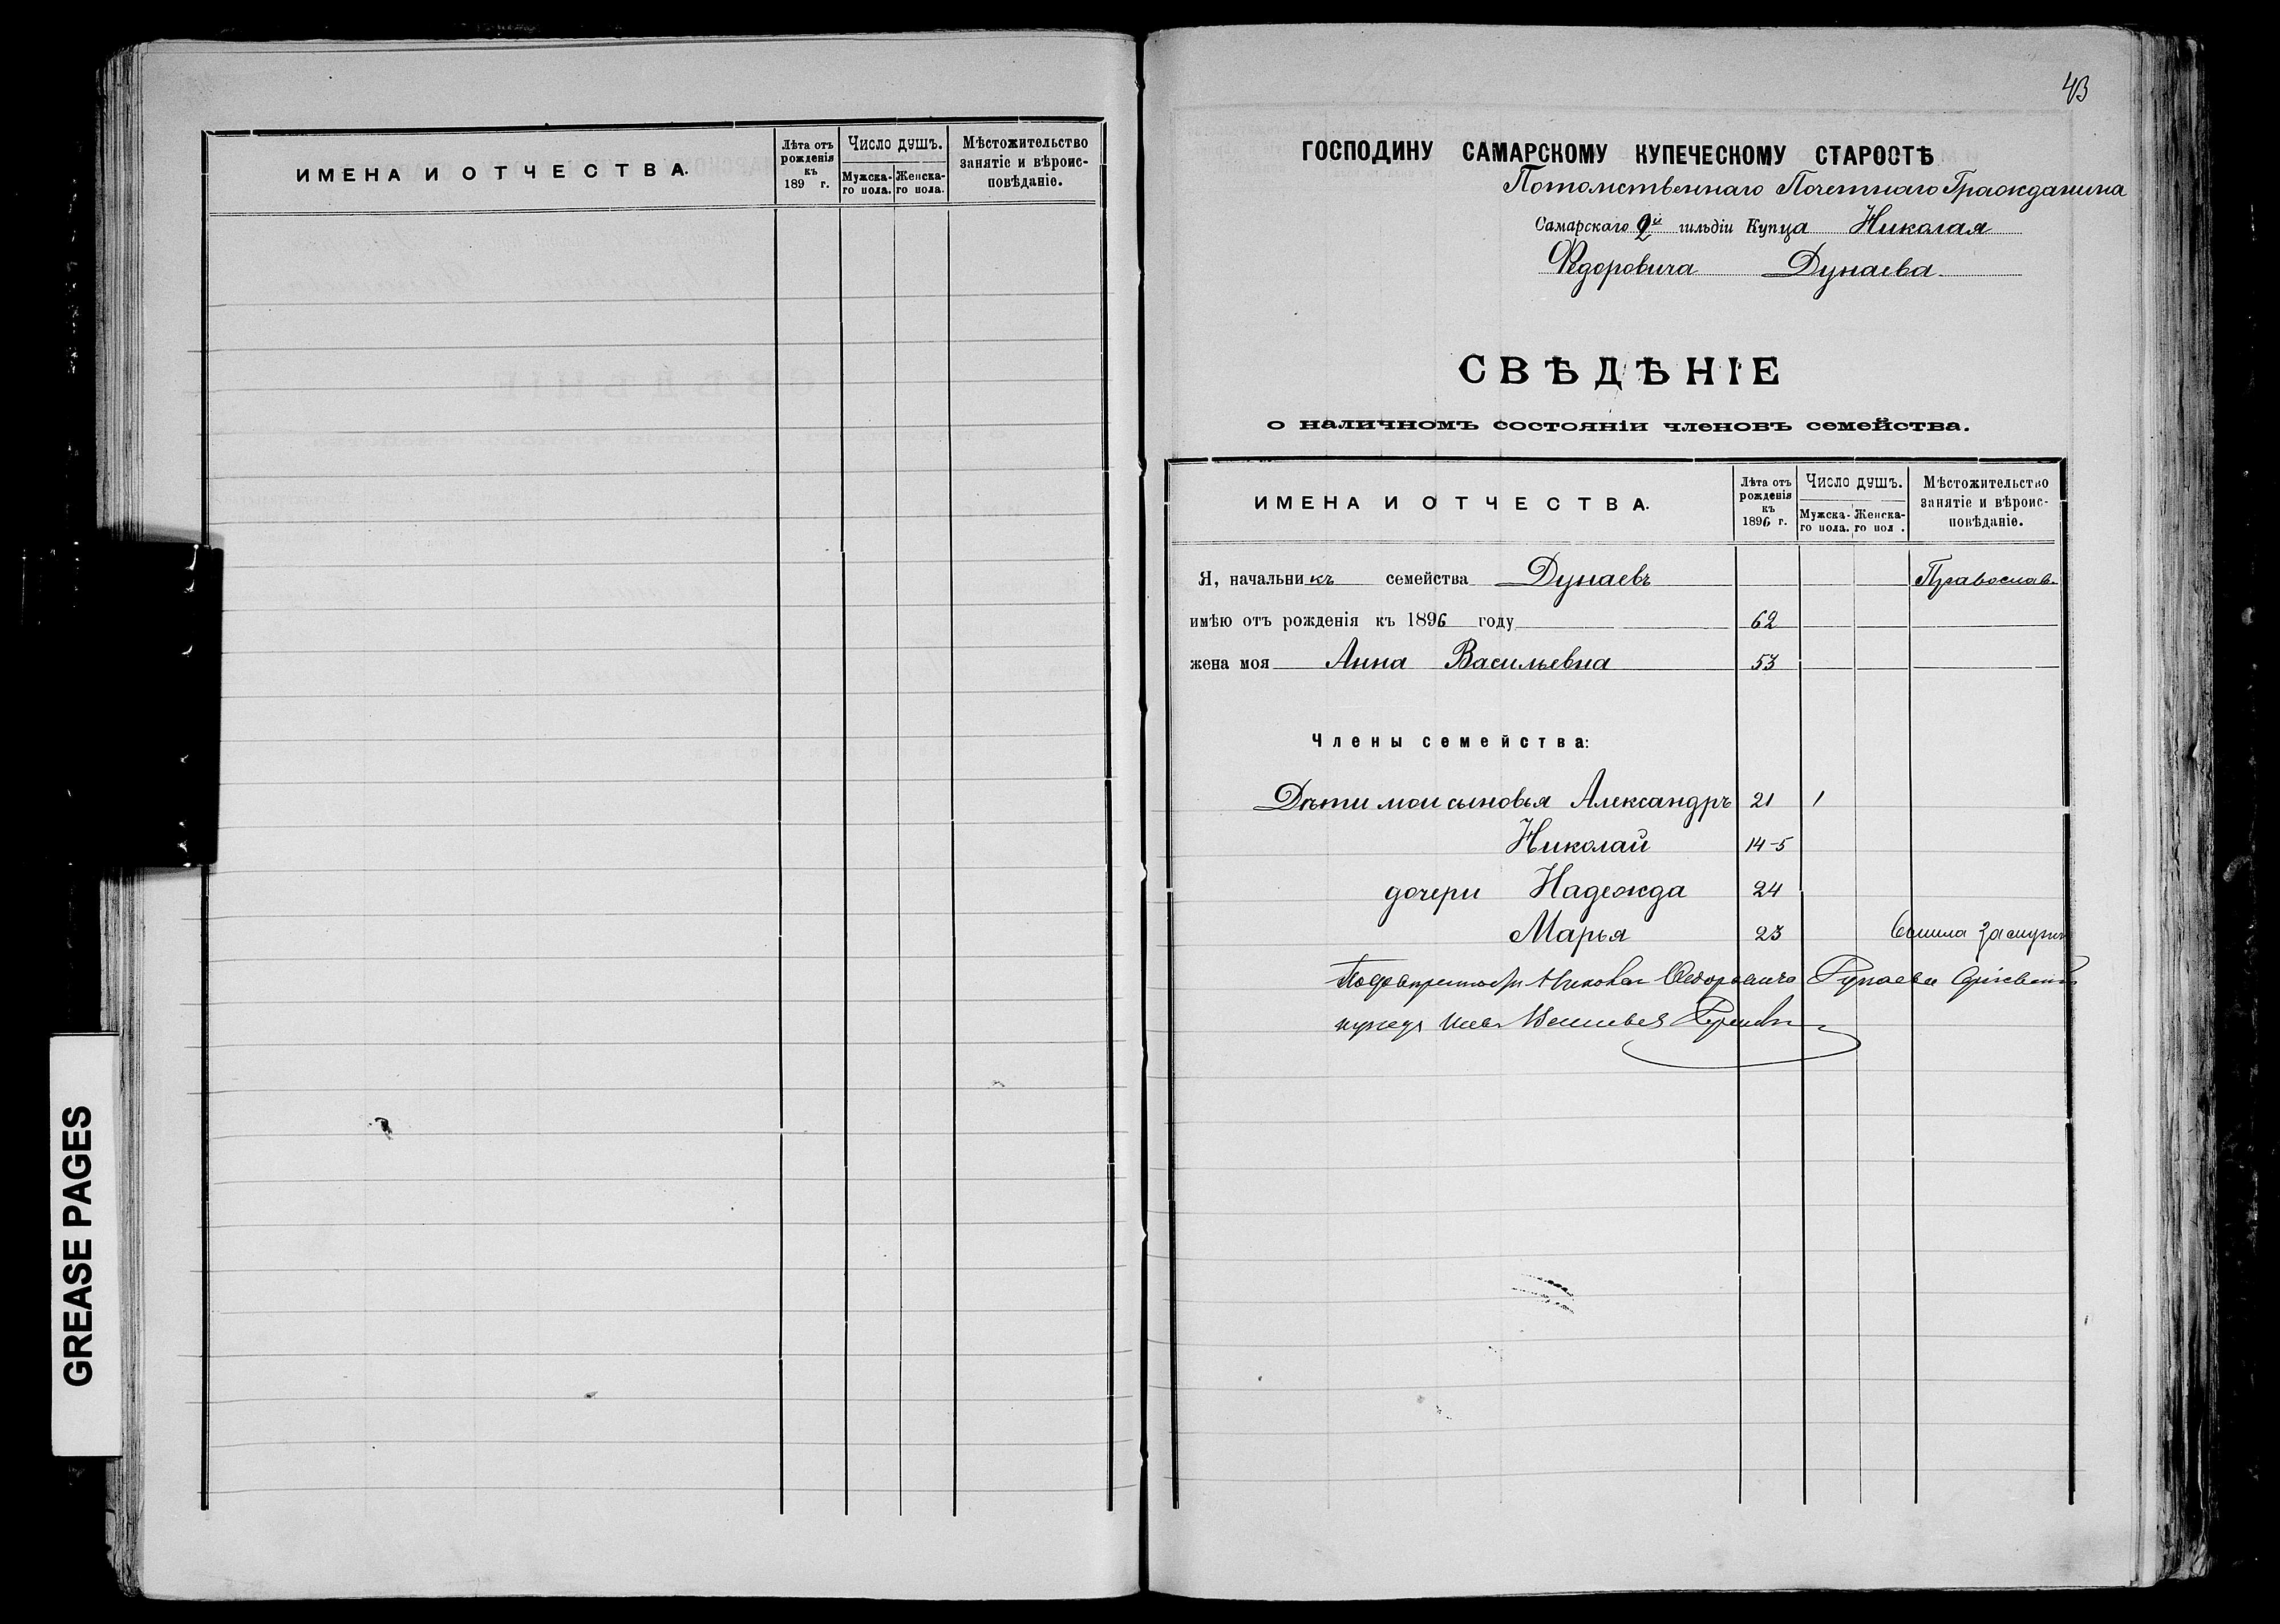 ИМЕНА И ОТЧЕСТВА.
Лѣта отъ рожденія къ 189 г.
Число душъ.
Мужска-го пола.
Женска-го пола.
Мѣстожительство занятіе и вѣроис-повѣданіе.
GREASE PAGES
43
ГОСПОДИНУ САМАРСКОМУ КУПЕЧЕСКОМУ СТАРОСТѢ
Потомственнаго Почетнаго Гражданина
Самарскаго 2й гильдіи Купца Николая
Федоровича Дунаева
СВѢДѢНІЕ
о наличномъ состояніи членовъ семейства.
ИМЕНА И ОТЧЕСТВА.
Лѣта отъ рожденія къ 1896 г.
Число душъ.
Мужска-го пола.
Женска-го пол .
Мѣстожительство занятіе и вѣроис-повѣданіе.
Я, начальникъ семейства Дунаевъ Православ.
имѣю отъ рожденія къ 1896 году 62
жена моя Анна Васильевна 53
Члены семейства:
Дѣти мои сыновья Александръ 21 1
Николай 14-5
дочери Надежда 24
Марья 23 вышла замужъ
Николая Федоровича Дунаева
купецъ